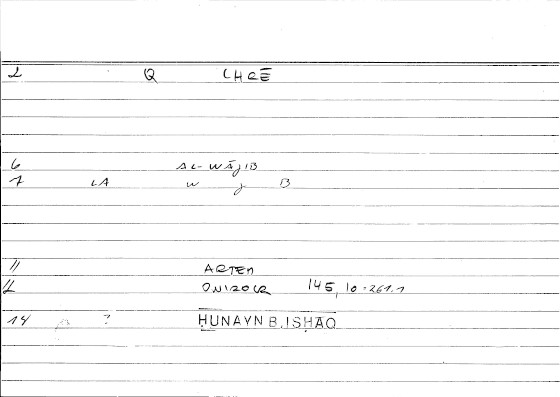 2 Q CHRĒ
6 AL-WĀJIB
7 LA W J B
11 ARTEM
12 ONIROCR 145, 10-261.1
14 ? ḤUNAYN B. ISḤĀQ